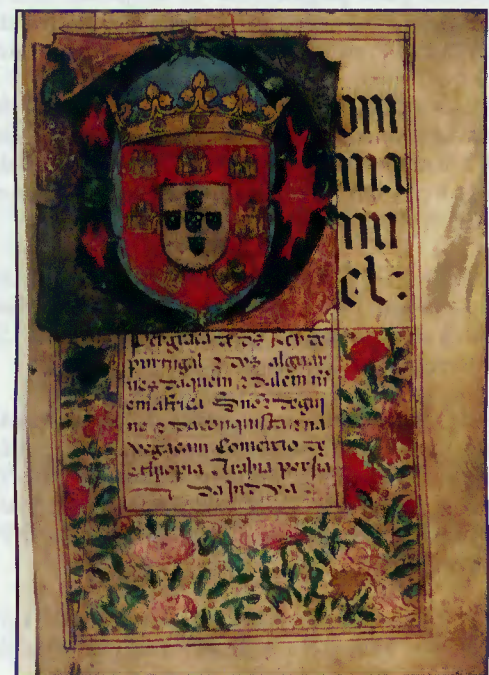 Dom
ma
nu
el:
Per graça de dꝰ Rey de
purtugal ⁊ dos alguar
ues daquem ⁊ dalem m̃
em africa Snõr de gui
ne ⁊ da conquista ⁊ na
vegaçam Comercio de
ethiopia Arabia persia
⁊ da Jndya